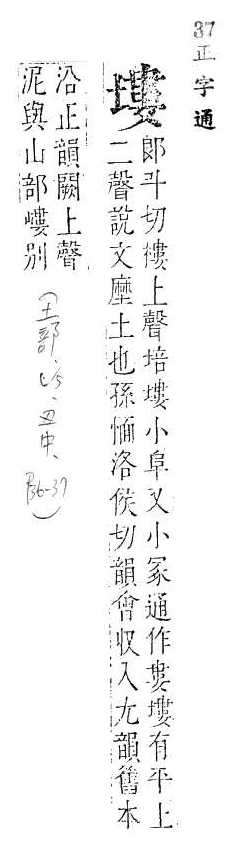 37正字通
塿
郎斗切摟上聲培塿小阜又小冢通作婁塿有平上
二聲說文塺土也孫愐洛侯切韻會收入尤韻舊本
沿正韻闕上聲
泥與山部嶁別
(土部
P36-37)